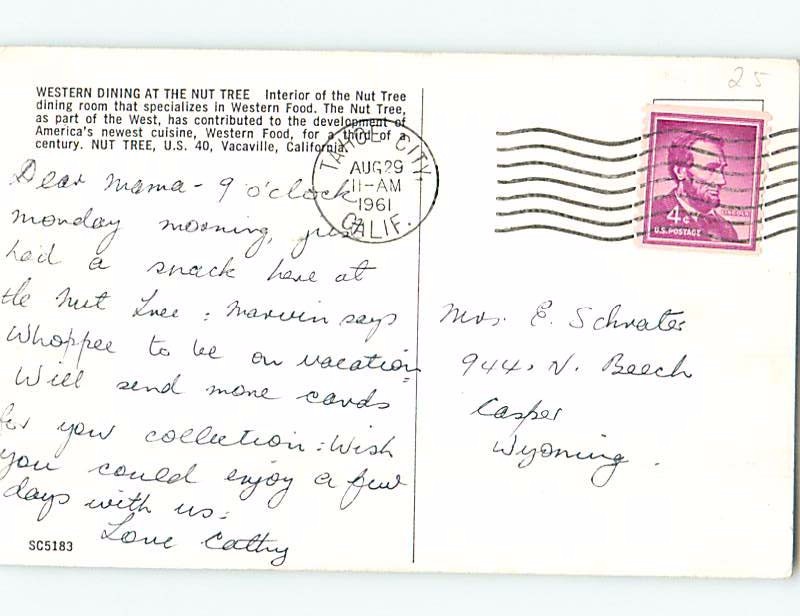 25
WESTERN DINING AT THE NUT TREE Interior of the Nut Tree
dining room that specializes in Western Food. The Nut Tree,
as part of the West, has contributed to the development of
America's newest cuisine, Western Food, for a third of a
century. NUT TREE, U.S. 40, Vacaville, California.
TAHOE CITY,
AUG 29
11-AM
1961
CALIF.
4¢
U.S. POSTAGE
Dear Mama - 9 o'clock
monday morning, just
had a snack here at
the Nut Tree: Marvin says
Whoppee to be on vacation
Will send more cards
for your collection: Wish
you could enjoy a few
days with us:
Love Cathy
SC5183
Mrs. E. Schrater
944, N. Beech
Casper
Wyoming.